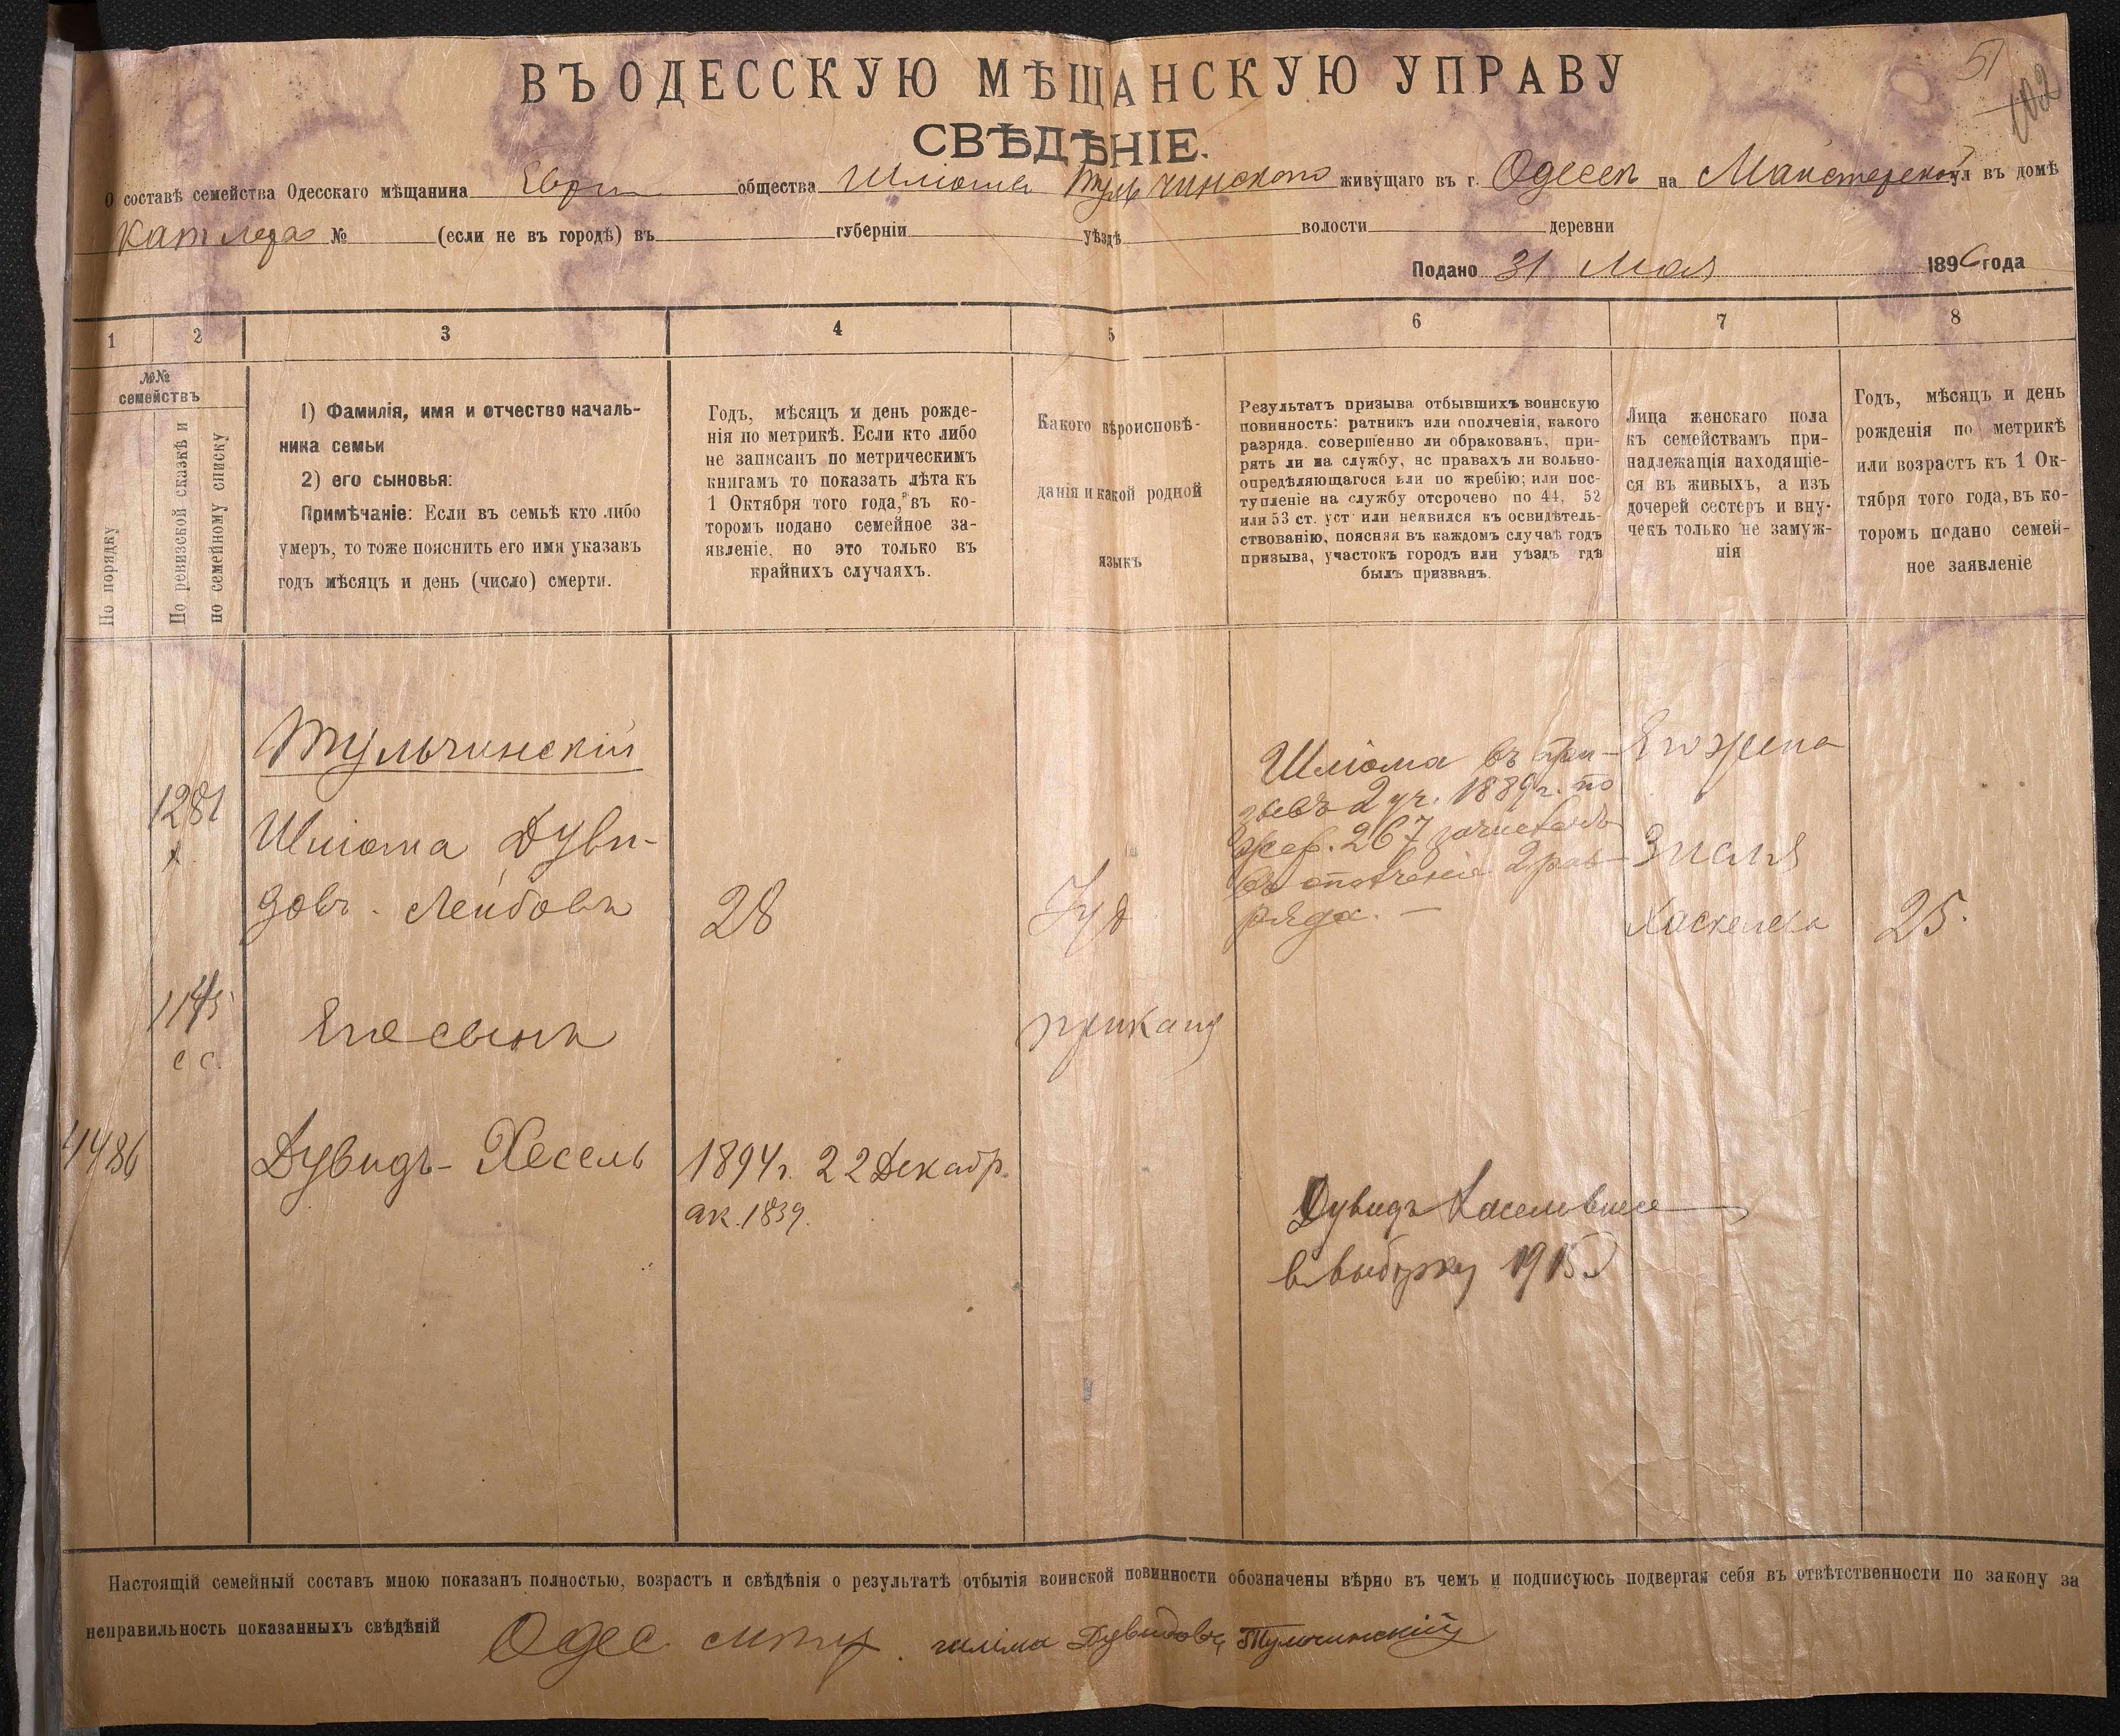 ВЪ ОДЕССКУЮ МѢЩАНСКУЮ УПРАВУ
51
102
СВѢДѢНІЕ.
О составѣ семейства Одесскаго мѣщанина Евр общества Шліома Тульчинскаго живущаго въ г. Одессѣ на Мастерской ул въ домѣ
№ (если не въ городѣ) въ губерніи уѣздѣ волости деревни
Подано 31 Мая 1896 года
1 2 3 4 5 6 7 8
№№
семействъ
По порядку
По ревизской сказкѣ и
по семейному списку
1) Фамилія, имя и отчество началь-
ника семьи
2) его сыновья:
Примѣчаніе: Если въ семьѣ кто либо
умеръ, то тоже пояснить его имя указавъ
годъ мѣсяцъ и день (число) смерти.
Годъ, мѣсяцъ и день рожде-
нія по метрикѣ. Если кто либо
не записанъ по метрическимъ
книгамъ то показать лѣта къ
1 Октября того года, въ ко-
торомъ подано семейное за-
явленіе, но это только въ
крайнихъ случаяхъ.
Какого вѣроисповѣ-
данія и какой родной
языкъ
Результатъ призыва отбывшихъ воинскую
повинность: ратникъ или ополченія, какого
разряда. совершенно ли обракованъ, при-
рять ли на службу, нс правахъ ли вольно-
опредѣляющагося или по жребію; или пос-
тупленіе на службу отсрочено по 44, 52
или 53 ст. уст или неявился къ освидѣтель-
ствованію, поясняя въ каждомъ случаѣ годъ
призыва, участокъ городъ или уѣздъ гдѣ
былъ призванъ.
Лица женскаго пола
къ семействамъ при-
надлежащія находящіе-
ся въ живыхъ, а изъ
дочерей сестеръ и вну-
чекъ только не замуж-
нія
Годъ, мѣсяцъ и день
рожденія по метрикѣ
или возрастъ къ 1 Ок-
тября того года, въ ко-
торомъ подано семей-
ное заявленіе
Тульчинскій
1281
Шліома Дуви-
довъ - Лейбовъ
28
Іуд
Шліома въ при-
зывѣ 2 уч. 1889 г. по
жер. 267 зачисленъ
въ ополченіе 2 раз-
ряда. —
Его жена
Зисля
Хаскелева
25.
1145
с с.
Его сынъ
4486
Дувидъ - Хесель
1894 г. 22 Декабр.
ак. 1839.
Дувидъ
в выборку 1915
Настоящій семейный составъ мною показанъ полностью, возрастъ и свѣдѣнія о результатѣ отбытія воинской повинности обозначены вѣрно въ чемъ и подписуюсь подвергая себя въ отвѣтственности по закону за
неправильность показанныхъ свѣдѣній Одес Дувидовъ Тульчинскій